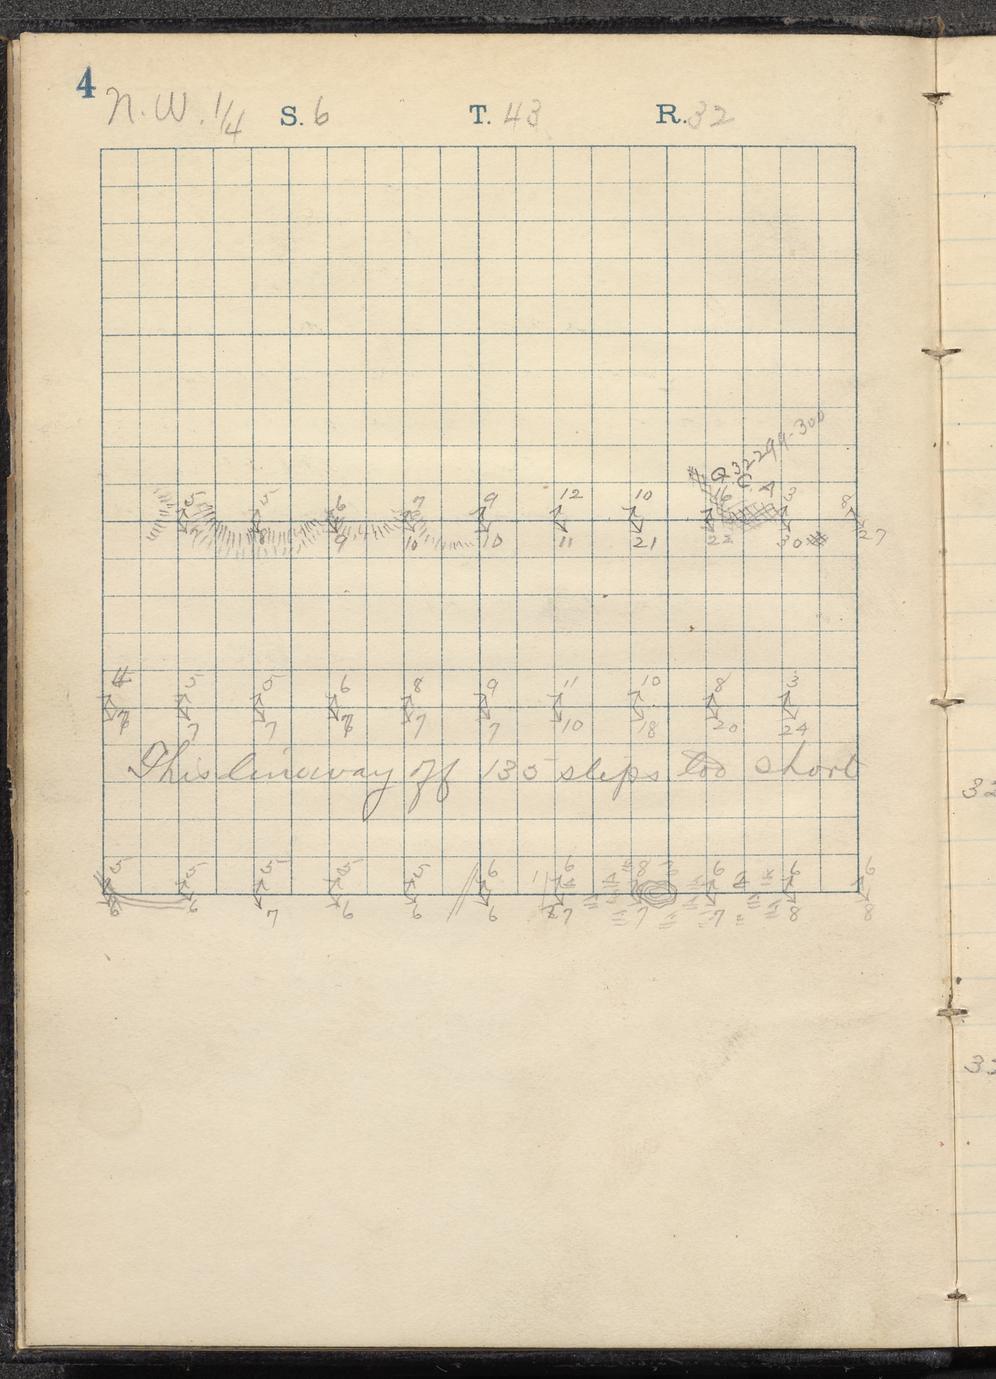 4
N.W. 1/4 S. 6 T. 43 R. 32
Q. 32299-300
C. A
5 5 6 7 9 12 10 16 3 8
7 8 9 10 10 11 21 22 30 27
4 5 5 6 8 9 11 10 8 3
7 7 7 7 7 10 18 20 24
This line way off 135 steps too short
5 5 5 5 5 6 6 8 6 6 6
6 6 7 6 6 6 7 7 7 8 8